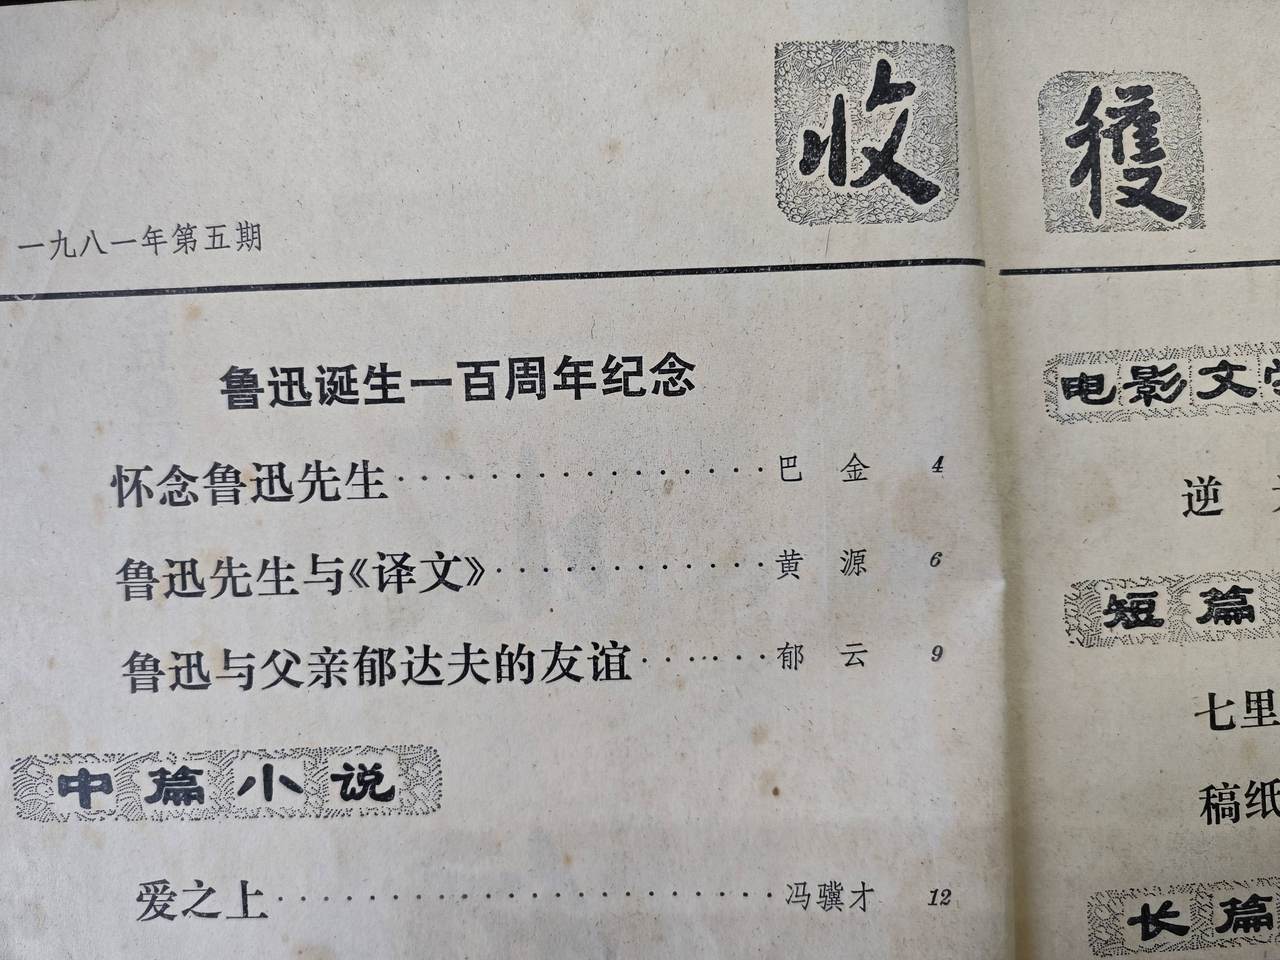 收穫
一九八一年第五期
鲁迅诞生一百周年纪念
怀念鲁迅先生················巴 金 4
鲁迅先生与《译文》············黄 源 6
鲁迅与父亲郁达夫的友谊·······郁 云 9
中篇小说
爱之上······················冯骥才 12
电影文
逆
短篇
七里
稿纸
长篇